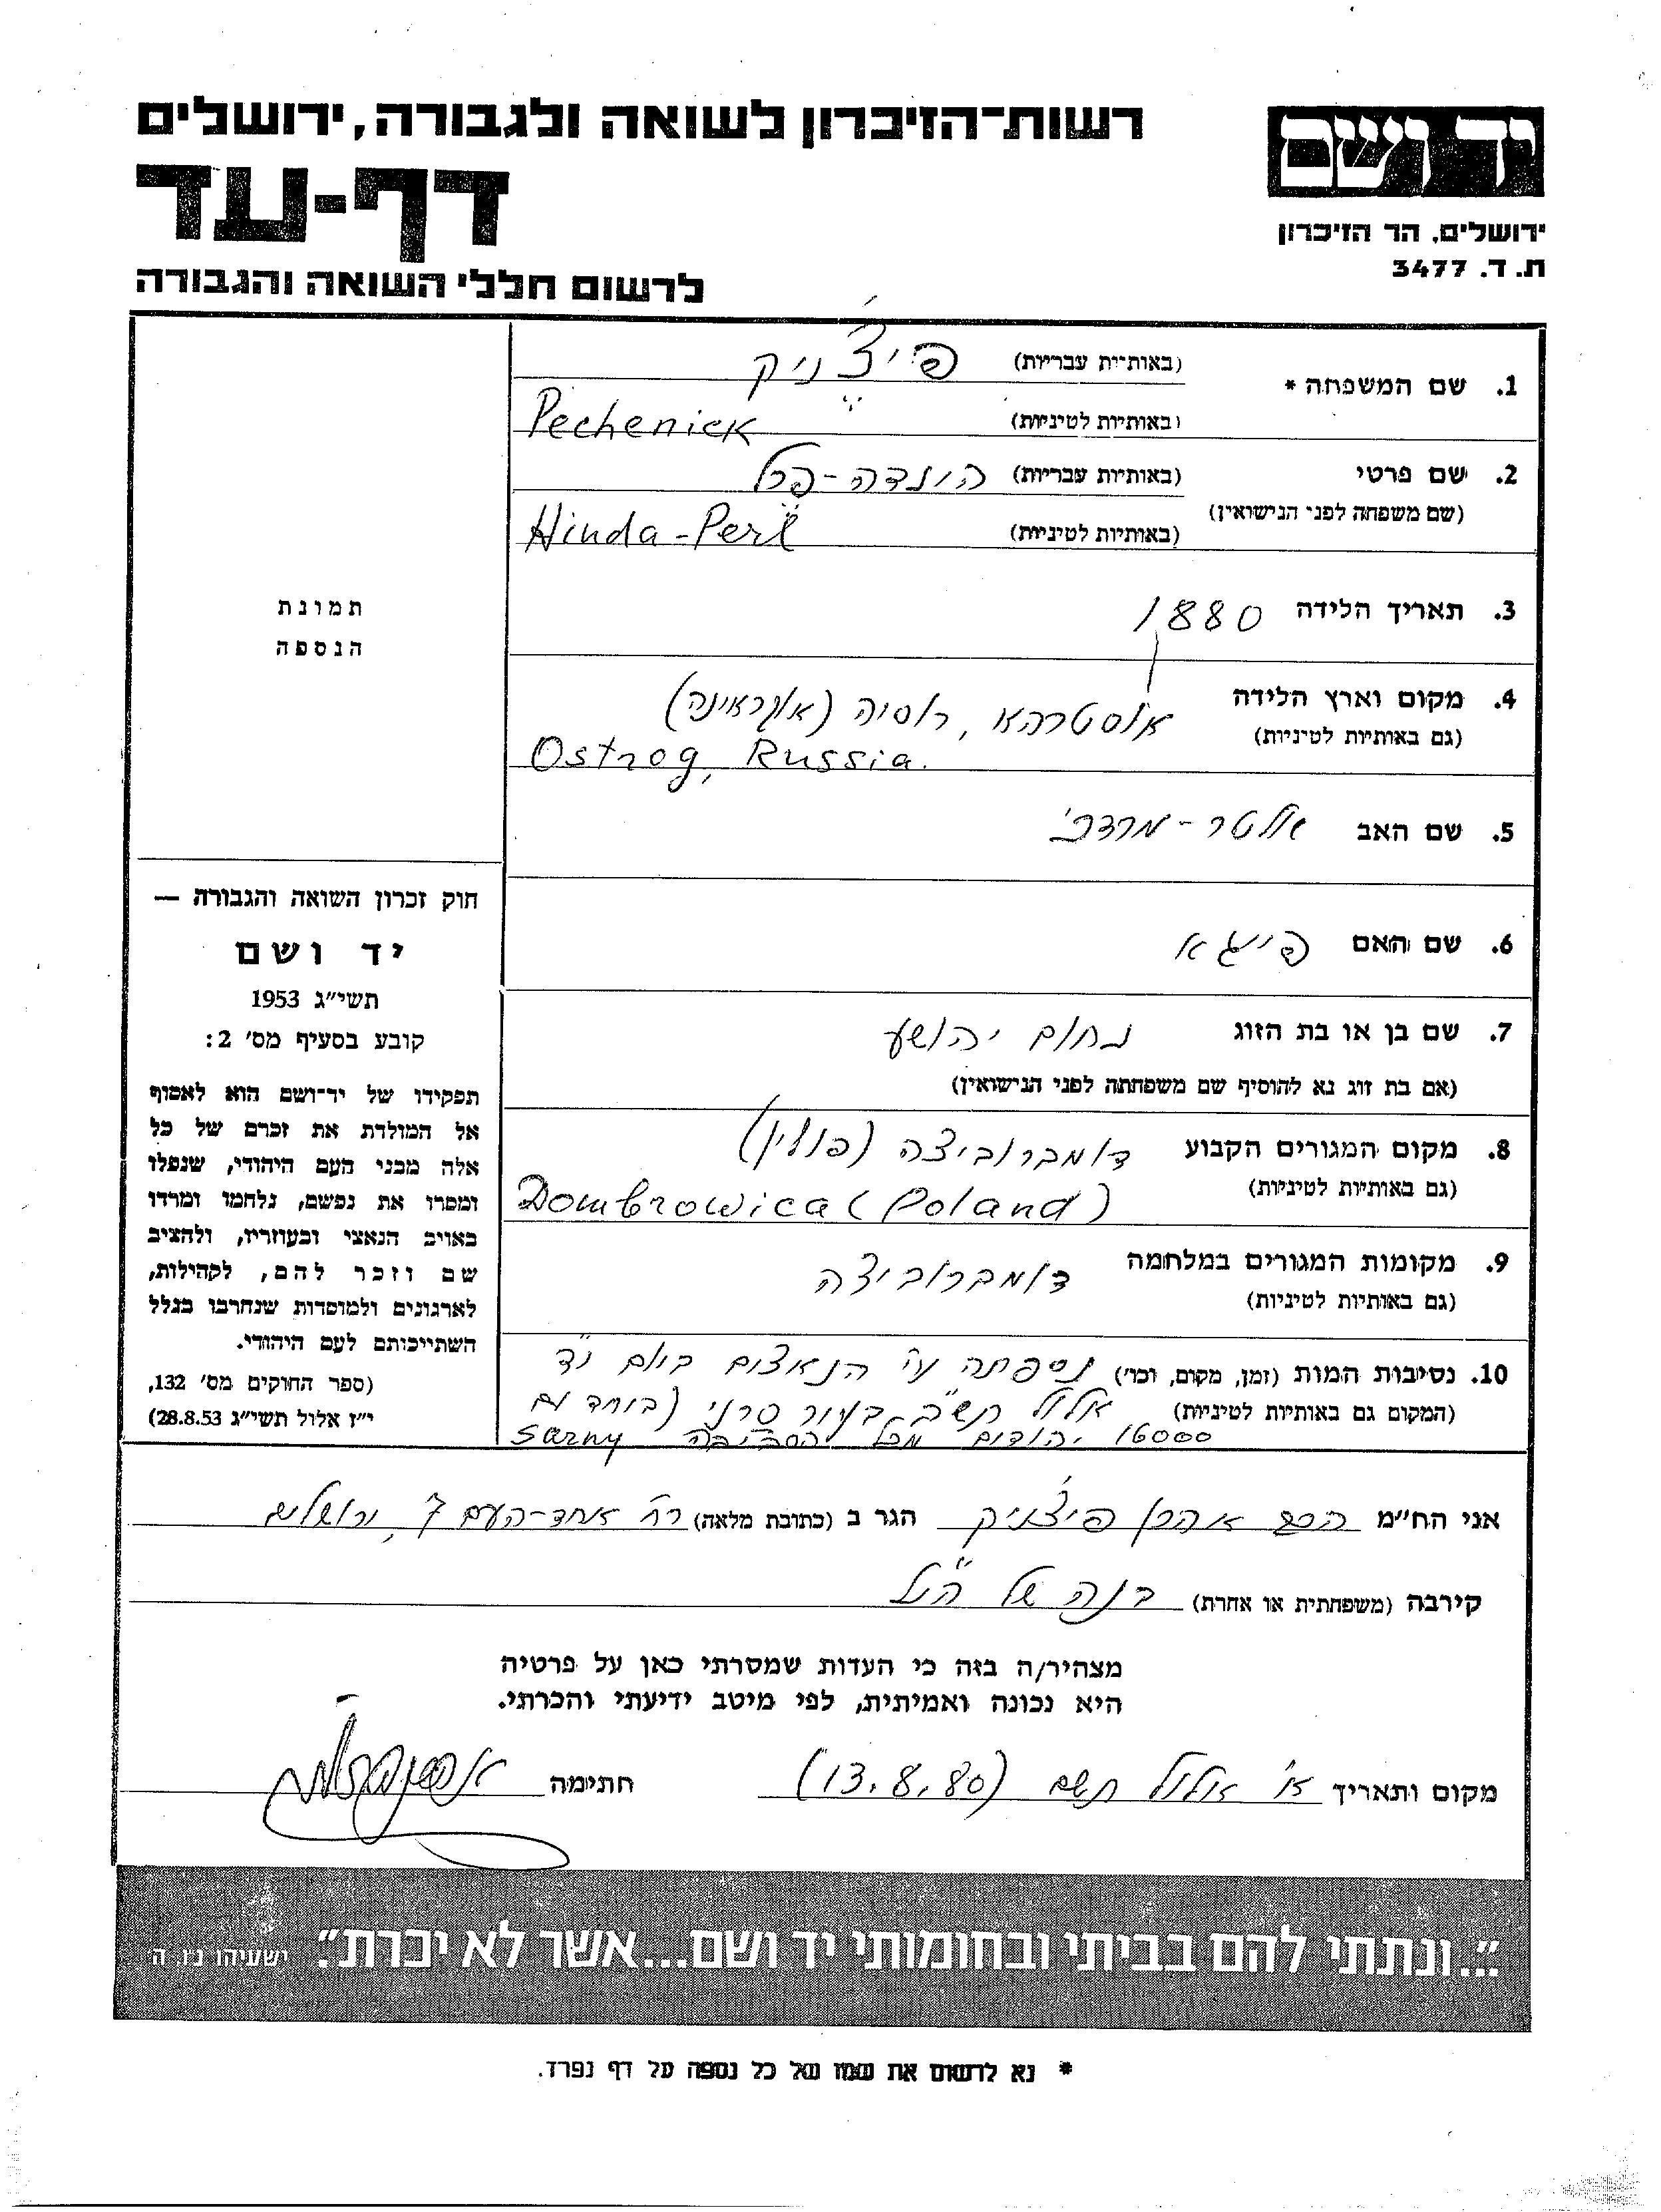 רשות-הזיכרון לשואה ולגבורה, ירושלים
יד ושם
דף-עד
ירושלים, הר הזיכרון
ת.ד. 3477
לרשום חללי השואה והגבורה
1. שם המשפחה * (באותיות עבריות) פיצ'ניק
(באותיות לטיניות) Pechenick
2. שם פרטי (באותיות עבריות) הינדה-פרל
(שם משפחה לפני הנישואין)
(באותיות לטיניות) Hinda-Perl
3. תאריך הלידה 1880
4. מקום וארץ הלידה אוסטרהא, רוסיה (אוקראינה)
(גם באותיות לטיניות) Ostrog, Russia.
5. שם האב אלטר-מרדכי
6. שם האם פייגא
7. שם בן או בת הזוג נחום יהושע
(אם בת זוג נא להוסיף שם משפחתה לפני הנישואין)
8. מקום המגורים הקבוע דומברוביצה (פולין)
(גם באותיות לטיניות) Dombrowica (Poland)
9. מקומות המגורים במלחמה דומברוביצה
(גם באותיות לטיניות)
10. נסיבות המות (זמן, מקום, וכו') נספתה ע"י הנאצים ביום י"ד
(המקום גם באותיות לטיניות) אלול תש"ב בעיר סרני (ביחד עם
16000 יהודים מכל הסביבה Sarny
תמונת
הנספה
חוק זכרון השואה והגבורה —
יד ושם
תשי"ג 1953
קובע בסעיף מס' 2:
תפקידו של יד-ושם הוא לאסוף
אל המולדת את זכרם של כל
אלה מבני העם היהודי, שנפלו
ומסרו את נפשם, נלחמו ומרדו
באויב הנאצי ובעוזריו, ולהציב
שם וזכר להם, לקהילות,
לארגונים ולמוסדות שנחרבו בגלל
השתייכותם לעם היהודי.
(ספר החוקים מס' 132,
י"ז אלול תשי"ג 28.8.53)
אני הח"מ הרב אהרן פיצ'ניק הגר ב (כתובת מלאה) רח' אחד-העם 7, ירושלים
קירבה (משפחתית או אחרת) בנה של הנ"ל
מצהיר/ה בזה כי העדות שמסרתי כאן על פרטיה
היא נכונה ואמיתית, לפי מיטב ידיעתי והכרתי.
מקום ותאריך א' אלול תשם (13.8.80) חתימה
"...ונתתי להם בביתי ובחומותי יד ושם...אשר לא יכרת". ישעיהו נ"ו, ה
* נא לרשום את שמו של כל נספה על דף נפרד.